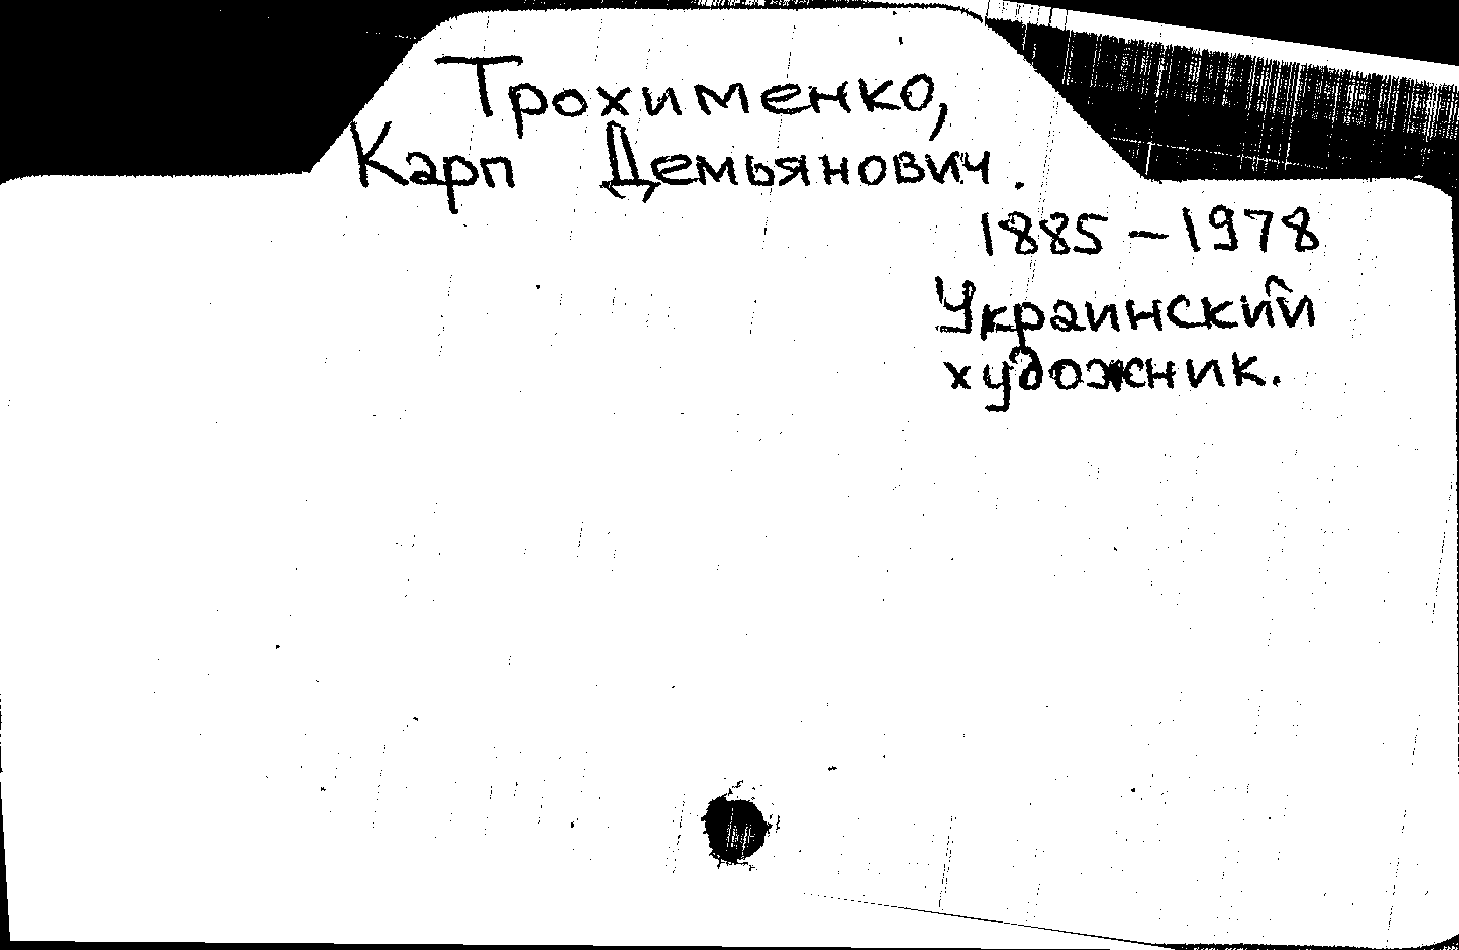 Трохименко,
Карп Демьянович.
1885 – 1978
Украинский
художник.